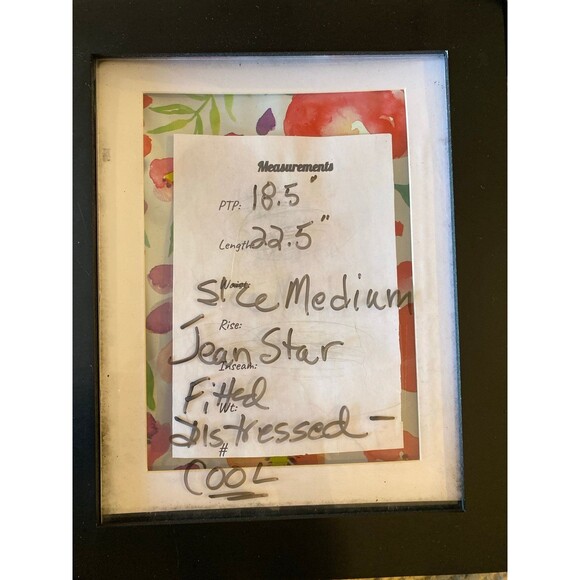 Measurements
PTP: 18.5"
Length: 22.5"
Waist:
Size Medium
Rise:
Jean Star
Inseam:
Fitted
Wt:
Distressed –
#
COOL